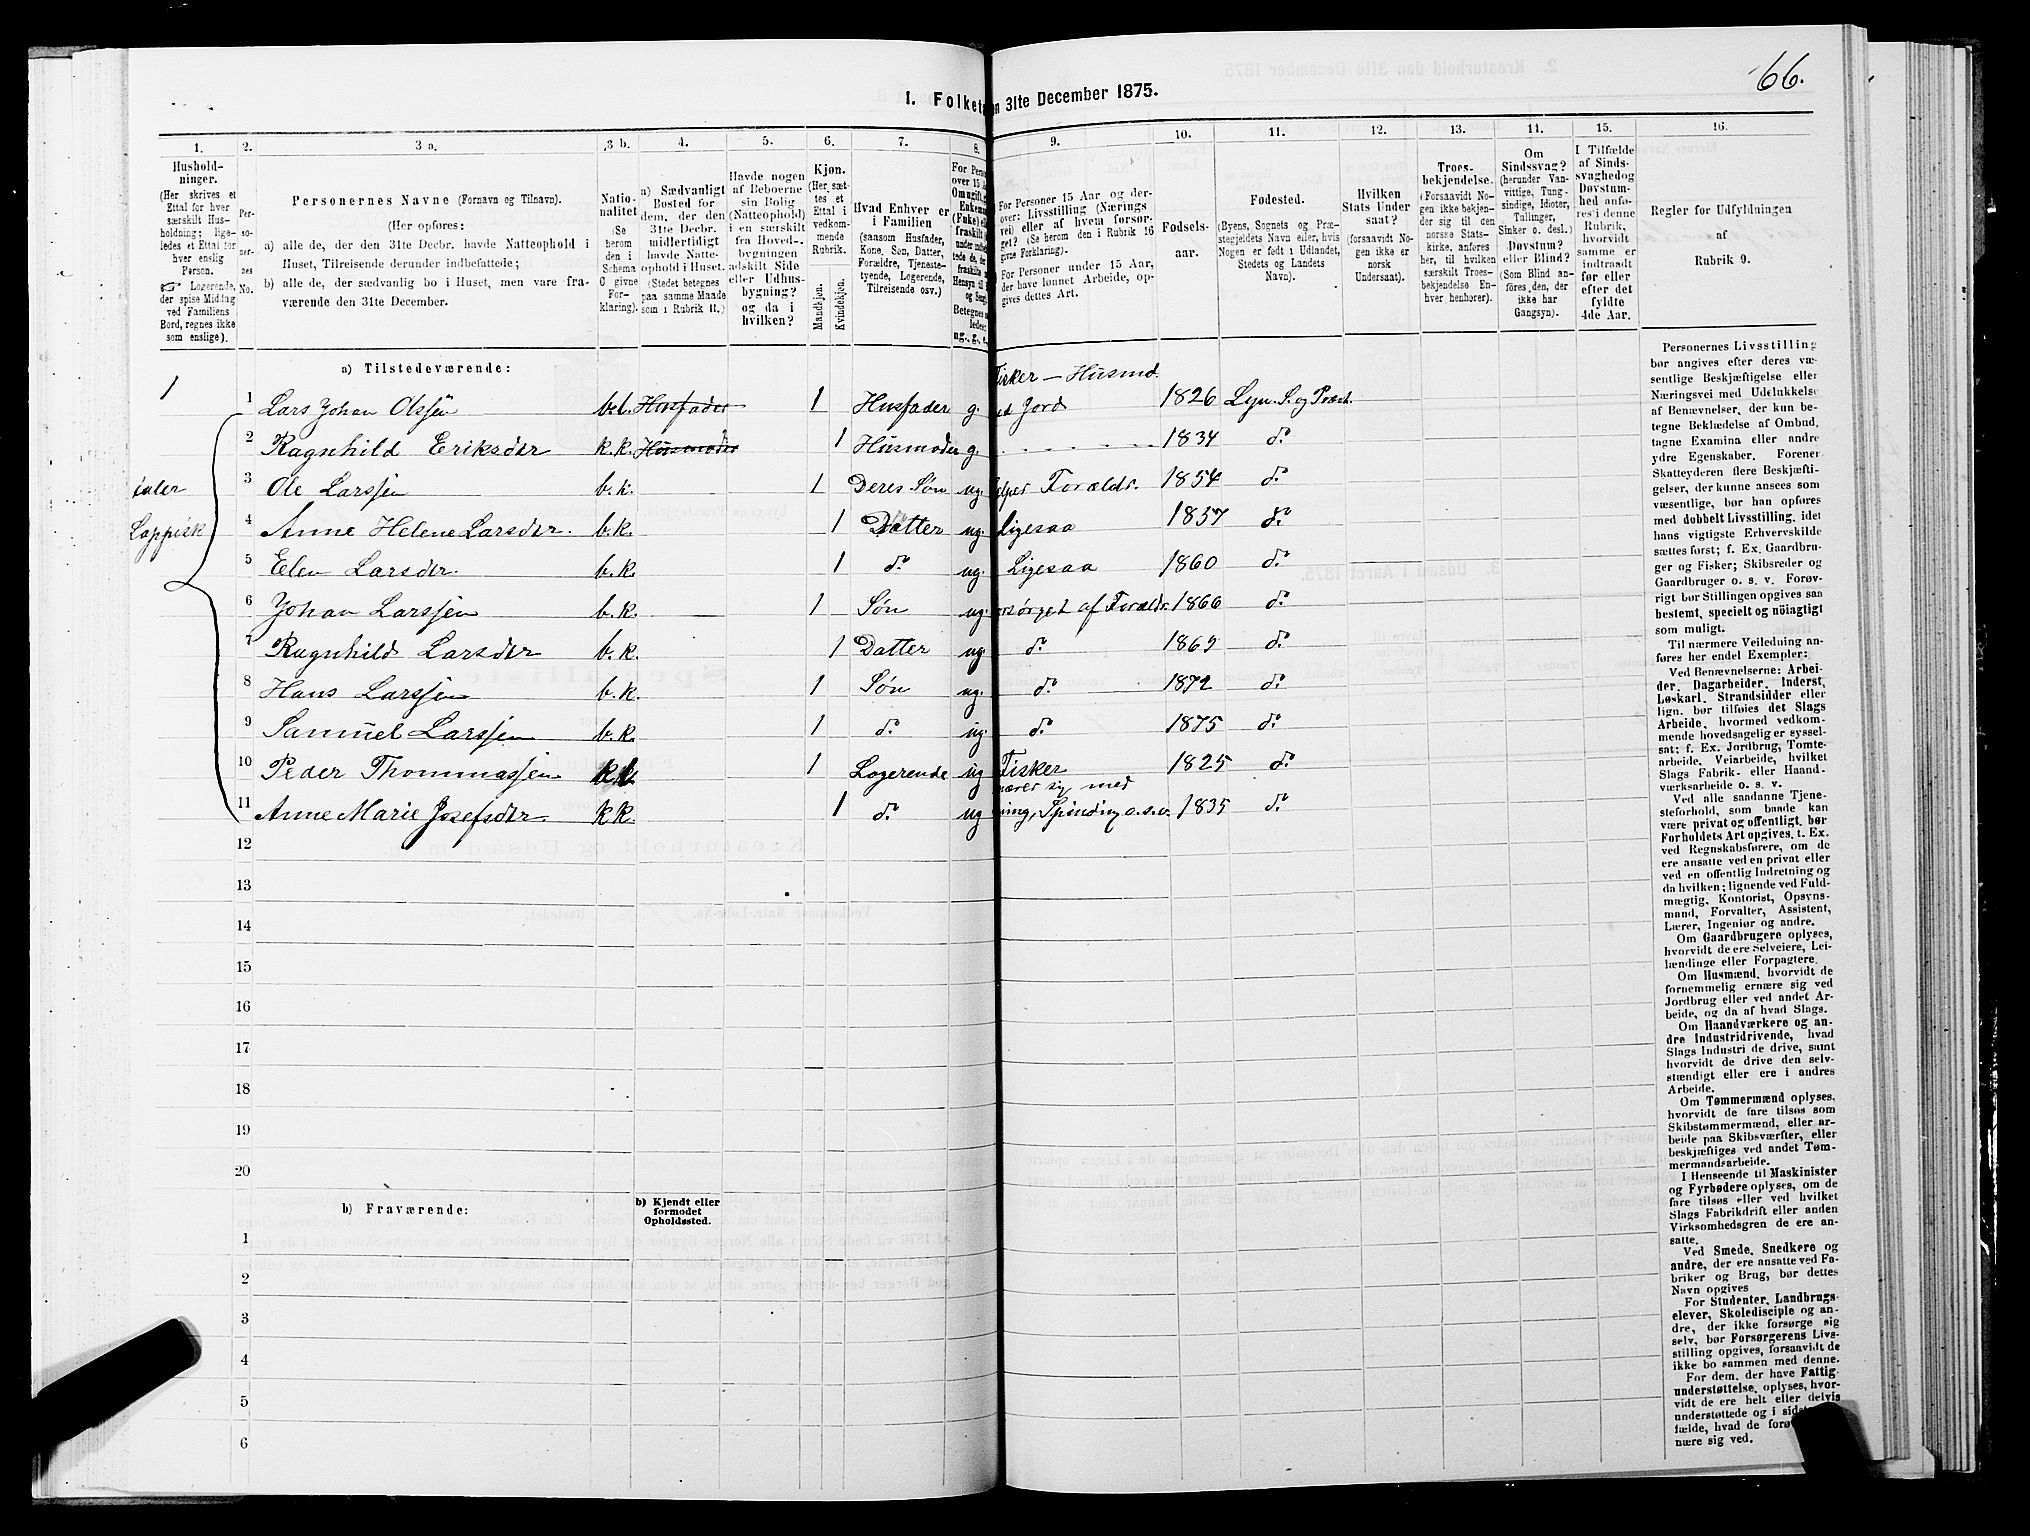 66.
1. Folket n 31te December 1875.
1. 2. 3 a. 3 b. 4. 5. 6. 7. 8. 9. 10. 11. 12. 13. 14. 15. 16.
Hushold-
ninger.
(Her skrives et
Ettal for hver
særskilt Hus-
holdning; lige-
ledes et Ettal for
hver enslig
Person.
Logerende,
der spise Middag
ved Familiens
Bord, regnes ikke
som enslige).
Per-
so-
ner-
nes
No.
Personernes Navne (Fornavn og Tilnavn).
(Her opføres:
a) alle de, der den 31te Decbr. havde Natteophold i
Huset, Tilreisende derunder indbefattede;
b) alle de, der sædvanlig bo i Huset, men vare fra-
værende den 31te December.
Natio-
nalitet
(Se
herom
den i
Schema
C givne
For-
klaring).
a) Sædvanligt
Bosted for
dem, der den
31te Decbr.
midlertidigt
havde Natte-
ophold i Huset.
(Stedet betegnes
paa samme Maade
som i Rubrik 11.)
Havde nogen
af Beboerne
sin Bolig
(Natteophold)
i en særskilt
fra Hoved-
bygningen
adskilt Side
eller Udhus-
bygning?
og da i
hvilken?
Kjøn.
(Her sæt-
tes et
Ettal i
vedkom-
mende
Rubrik.
Mandkjøn.
Kvindekjøn.
Hvad Enhver er
i Familien
(saasom Husfader,
Kone, Søn, Datter,
Forældre, Tjeneste-
tyende, Logerende,
Tilreisende osv.)
For Personer 15 Aar og der-
over: Livsstilling (Nærings
vei) eller af hvem forsør-
get? (Se herom den i Rubrik 16
givne Forklaring).
For Personer under 15 Aar,
der have lønnet Arbeide, op-
gives dettes Art.
Fødsels-
aar.
Fødested.
(Byens, Sognets og Præ-
stegjeldets Navn eller, hvis
Nogen er født i Udlandet,
Stedets og Landets
Navn).
Hvilken
Stats Under
saat?
(forsaavidt No-
gen ikke er
norsk
Undersaat).
Troes-
bekjendelse.
(Forsaavidt No-
gen ikke bekjen-
der sig til den
norske Stats-
kirke, anføres
her, til hvilken
særskilt Troes-
bekjendelse En-
hver henhører).
Om
Sindssvag?
(herunder Van-
vittige, Tung-
sindige, Idioter,
Tullinger,
Sinker o. desl.)
Døvstum?
eller Blind?
(Som Blind an-
føres den, der
ikke har
Gangsyn).
I Tilfælde
af Sinds-
svaghedog
Døvstum-
hed anfø-
res i denne
Rubrik,
hvorvidt
samme er
indtraadt
før eller
efter det
fyldte
4de Aar.
Regler for Udfyldningen
af
Rubrik 9.
a) Tilstedeværende:
1
Fisker - Husmd.
1 Lars Johan Olssen b.l. Husfader 1 Husfader g. Jord 1826 Lyn. S. og Præst.
2 Ragnhild Eriksdtr k.k. Husmoder 1 Husmoder g. 1834 do
3 Ole Larssen b.k. 1 Deres Søn ug. Forældr. 1854 do
taler
Lappisk
4 Anne Helene Larsdtr. b.k. 1 Datter ug. Ligesaa 1857 do
5 Elen Larsdtr. b.k. 1 do ug. Ligesaa 1860 do
6 Johan Larssen b.k. 1 Søn ug. orsørget af Forældr. 1866 do
7 Ragnhild Larsdtr b.k. 1 Datter ug. do 1869 do
8 Hans Larssen b.k. 1 Søn ug. do 1872 do
9 Samuel Larssen b.k. 1 do ug. do 1875 do
10 Peder Thommassen 1 Logerende ug Fisker 1825 do
nærer sig med
11 Anne Marie Josefsdtr k.k. 1 do ug ning, Spinding o.s.v. 1835 do
12
13
14
15
16
17
18
19
20
b) Fraværende:
b) Kjendt eller
formodet
Opholdssted.
1
2
3
4
5
6
Personernes Livsstilling
bør angives efter deres væ-
sentlige Beskjæftigelse eller
Næringsvei med Udelukkelse
af Benævnelser, der kun be-
tegne Beklædelse af Ombud,
tagne Examina eller andre
ydre Egenskaber. Forener
Skatteyderen flere Beskjæfti-
gelser, der kunne ansees som
væsentlige, bør han opføres
med dobbelt Livsstilling, idet
hans vigtigste Erhvervskilde
sættes først; f. Ex. Gaardbru-
ger og Fisker; Skibsreder og
Gaardbruger o. s. v. Forøv-
rigt bør Stillingen opgives saa
bestemt, specielt og nöiagtigt
som muligt.
Til nærmere Veiledning an-
føres her endel Exempler:
Ved Benævnelserne: Arbei-
der, Dagarbeider, Inderst,
Løskarl, Strandsidder eller
lign. bør tilføies det Slags
Arbeide, hvormed vedkom-
mende hovedsagelig er syssel-
sat; f. Ex. Jordbrug, Tomte-
arbeide, Veiarbeide, hvilket
Slags Fabrik- eller Haand-
værksarbeide o. s. v.
Ved alle saadanne Tjene-
steforhold, som baade kan
være privat og offentligt, bør
Forholdets Art opgives, t. Ex.
ved Regnskabsførere, om de
ere ansatte ved en privat eller
ved en offentlig Indretning og
da hvilken; lignende ved Fuld-
mægtig, Kontorist, Opsyns-
mand, Forvalter, Assistent,
Lærer, Ingeniør og andre.
Om Gaardbrugere oplyses,
hvorvidt de ere Selveiere, Lei-
lændinge eller Forpagtere.
Om Husmænd, hvorvidt de
fornemmelig ernære sig ved
Jordbrug eller ved andet Ar-
beide, og da af hvad Slags.
Om Haandværkere og an-
dre Industridrivende, hvad
Slags Industri de drive, samt
hvorvidt de drive den selv-
stændigt eller ere i andres
Arbeide.
Om Tømmermænd oplyses,
hvorvidt de fare tilsøs som
Skibstømmermænd, eller ar-
beide paa Skibsværfter, eller
beskjæftiges ved andet Tøm-
mermandsarbeide.
I Henseende til Maskinister
og Fyrbødere oplyses, om de
fare tilsøs eller ved hvilket
Slags Fabrikdrift eller anden
Virksomhedsgren de ere an-
satte.
Ved Smede, Snedkere og
andre, der ere ansatte ved Fa-
briker og Brug, bør dettes
Navn opgives
For Studenter, Landbrugs-
elever, Skoledisciple og an-
dre, der ikke forsørge sig
selv, bør Forsørgerens Livs-
stilling opgives, forsaavidt de
ikke bo sammen med denne.
For dem, der have Fattig-
understøttelse, oplyses, hvor-
vidt de ere helt eller delvis
understøttede og i sidst
fælde, hvad de forø
nære sig ved.